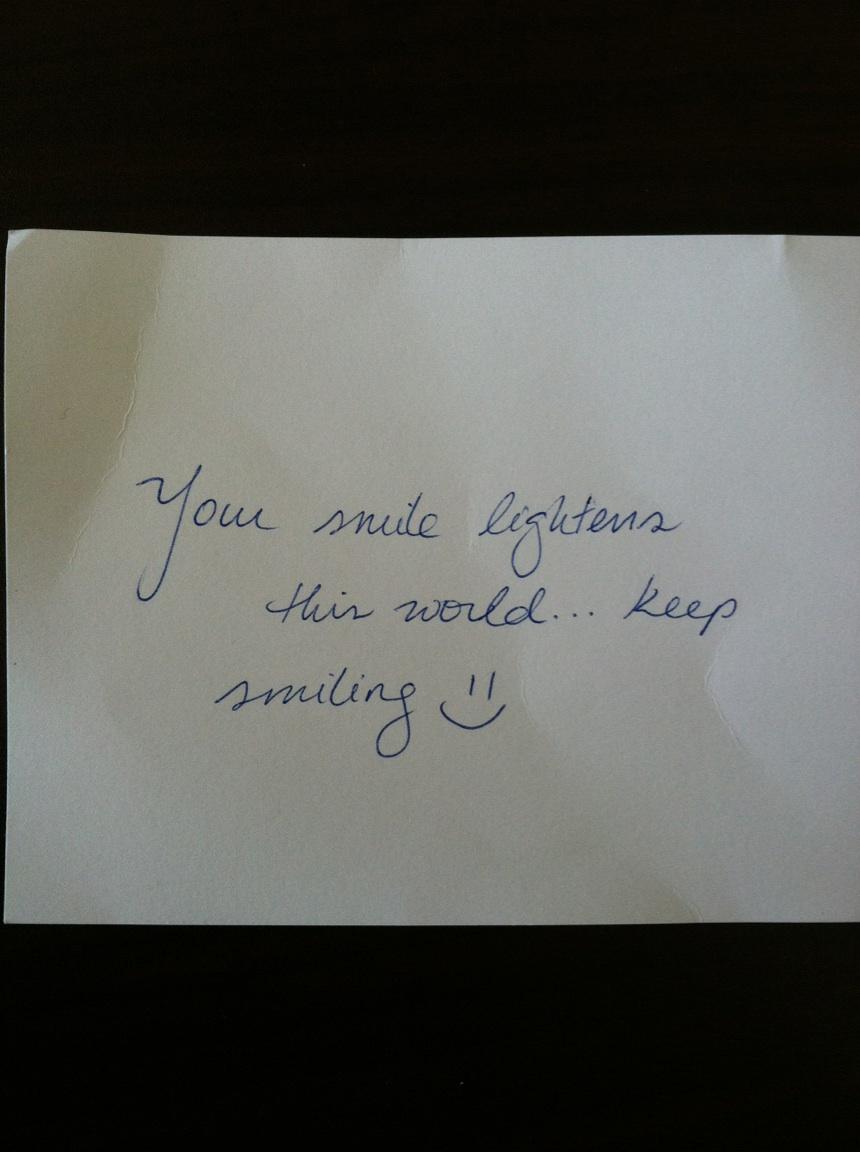 Your smile lightens
this world... keep
smiling :)